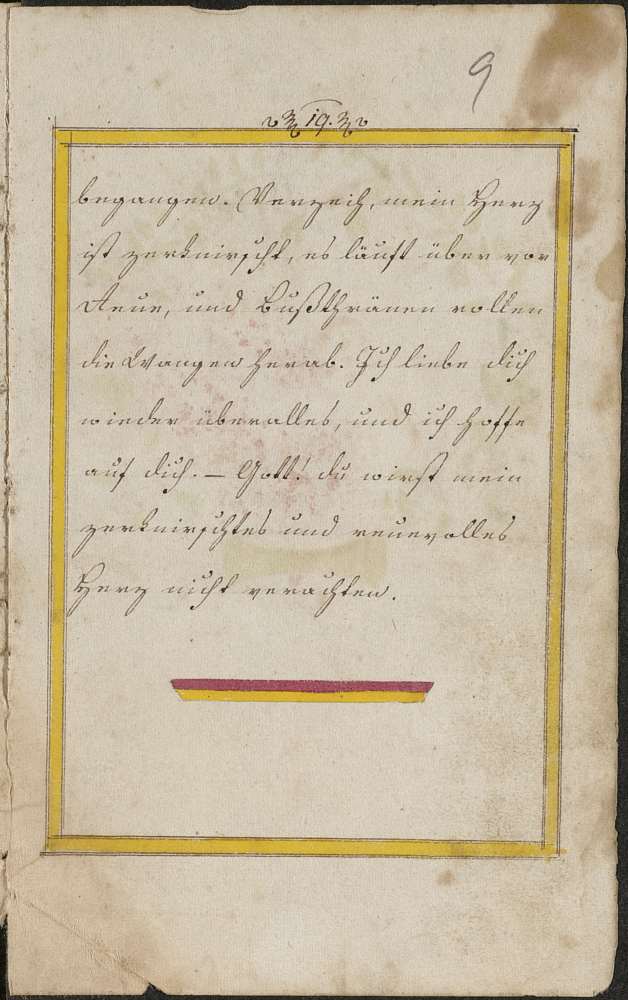 9
19.
begangen. Verzeih, mein Herz
ist zerknirscht, es läuft über vor
Reue, und Bußthränen rollen
die Wangen herab. Ich liebe dich
wieder über alles, und ich hoffe
auf dich. – Gott! du wirst mein
zerknirschtes und reuevolles
Herz nicht verachten.